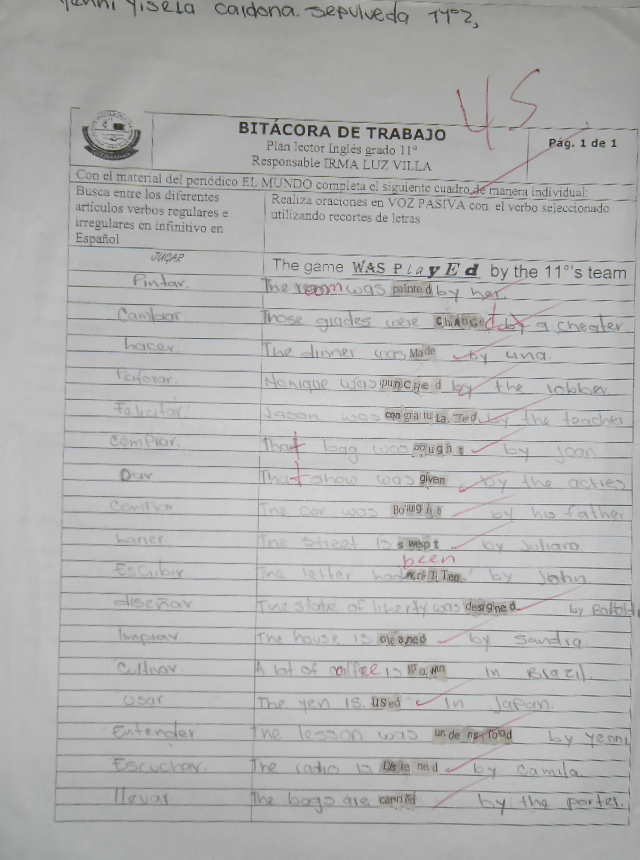 Yenni Yisela Cardona Sepulveda 11°2,
45
BITÁCORA DE TRABAJO
Plan lector Inglés grado 11°
Responsable IRMA LUZ VILLA
Pág. 1 de 1
Con el material del periódico EL MUNDO completa el siguiente cuadro de manera individual:
Busca entre los diferentes artículos verbos regulares e irregulares en infinitivo en Español
Realiza oraciones en VOZ PASIVA con el verbo seleccionado utilizando recortes de letras
JUGAR The game WAS PlayEd by the 11°'s team
Pintar. The room was painted by her.
Cambiar Those glades were changed by a cheater
hacer. The dinner was Made by una.
Monique was punched by the robber
Felicitar. Jason was congratulated by the teacher
Comprar. That bag was bought by joan
Dar That show was given by the actres
The car was Bought by his father
barrer The street is swept by Juliana
Escribir The letter had been written by John
diseñar The statue of liberty was designed by
limpiar The house is cleaned by Sandra
Cultivar A lot of coffee is in Brazil.
usar The yen is used in Japan.
Entender the lesson was understood by yenni
Escuchar. The radio is listened by Camila
llevar The bags are carried by the porter.